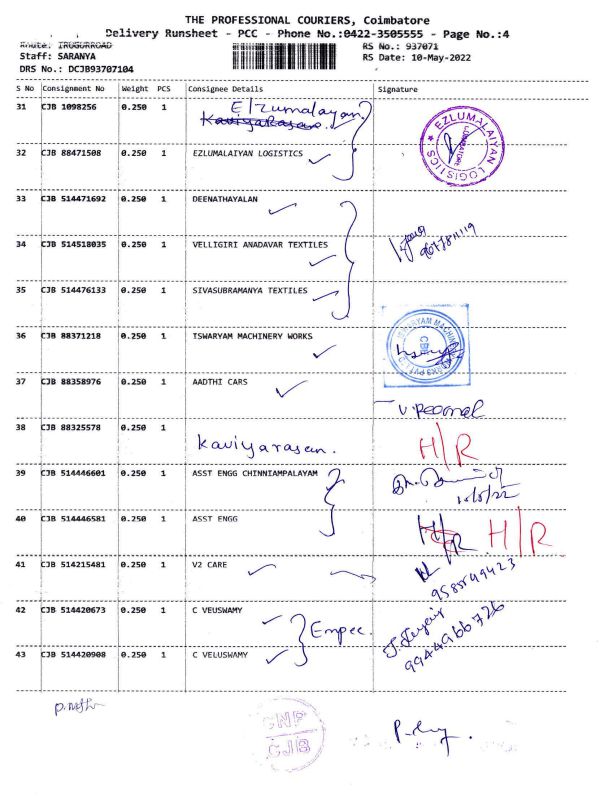 THE PROFESSIONAL COURIERS, Coimbatore
Delivery Runsheet - PCC - Phone No.:0422-3505555 - Page No.:4
Route: IRUGURROAD RS No.: 937071
Staff: SARANYA RS Date: 10-May-2022
DRS No.: DCJB93707104
S No Consignment No Weight PCS Consignee Details Signature
31 CJB 1098256 0.250 1 Elzumalayan.
Kaviyarasan.
32 CJB 88471508 0.250 1 EZLUMALAIYAN LOGISTICS
EZLUMALAIYAN LOGISTICS
COIMBATORE
33 CJB 514471692 0.250 1 DEENATHAYALAN
34 CJB 514518035 0.250 1 VELLIGIRI ANADAVAR TEXTILES
35 CJB 514476133 0.250 1 SIVASUBRAMANYA TEXTILES
36 CJB 88371218 0.250 1 TSWARYAM MACHINERY WORKS
37 CJB 88358976 0.250 1 AADTHI CARS
38 CJB 88325578 0.250 1 Kaviyarasan. H/R
39 CJB 514446601 0.250 1 ASST ENGG CHINNIAMPALAYAM
10/5/22
40 CJB 514446581 0.250 1 ASST ENGG H/R H/R
41 CJB 514215481 0.250 1 V2 CARE
9585549423
42 CJB 514420673 0.250 1 C VEUSWAMY
Empee.
9944966726
43 CJB 514420908 0.250 1 C VELUSWAMY
CJB